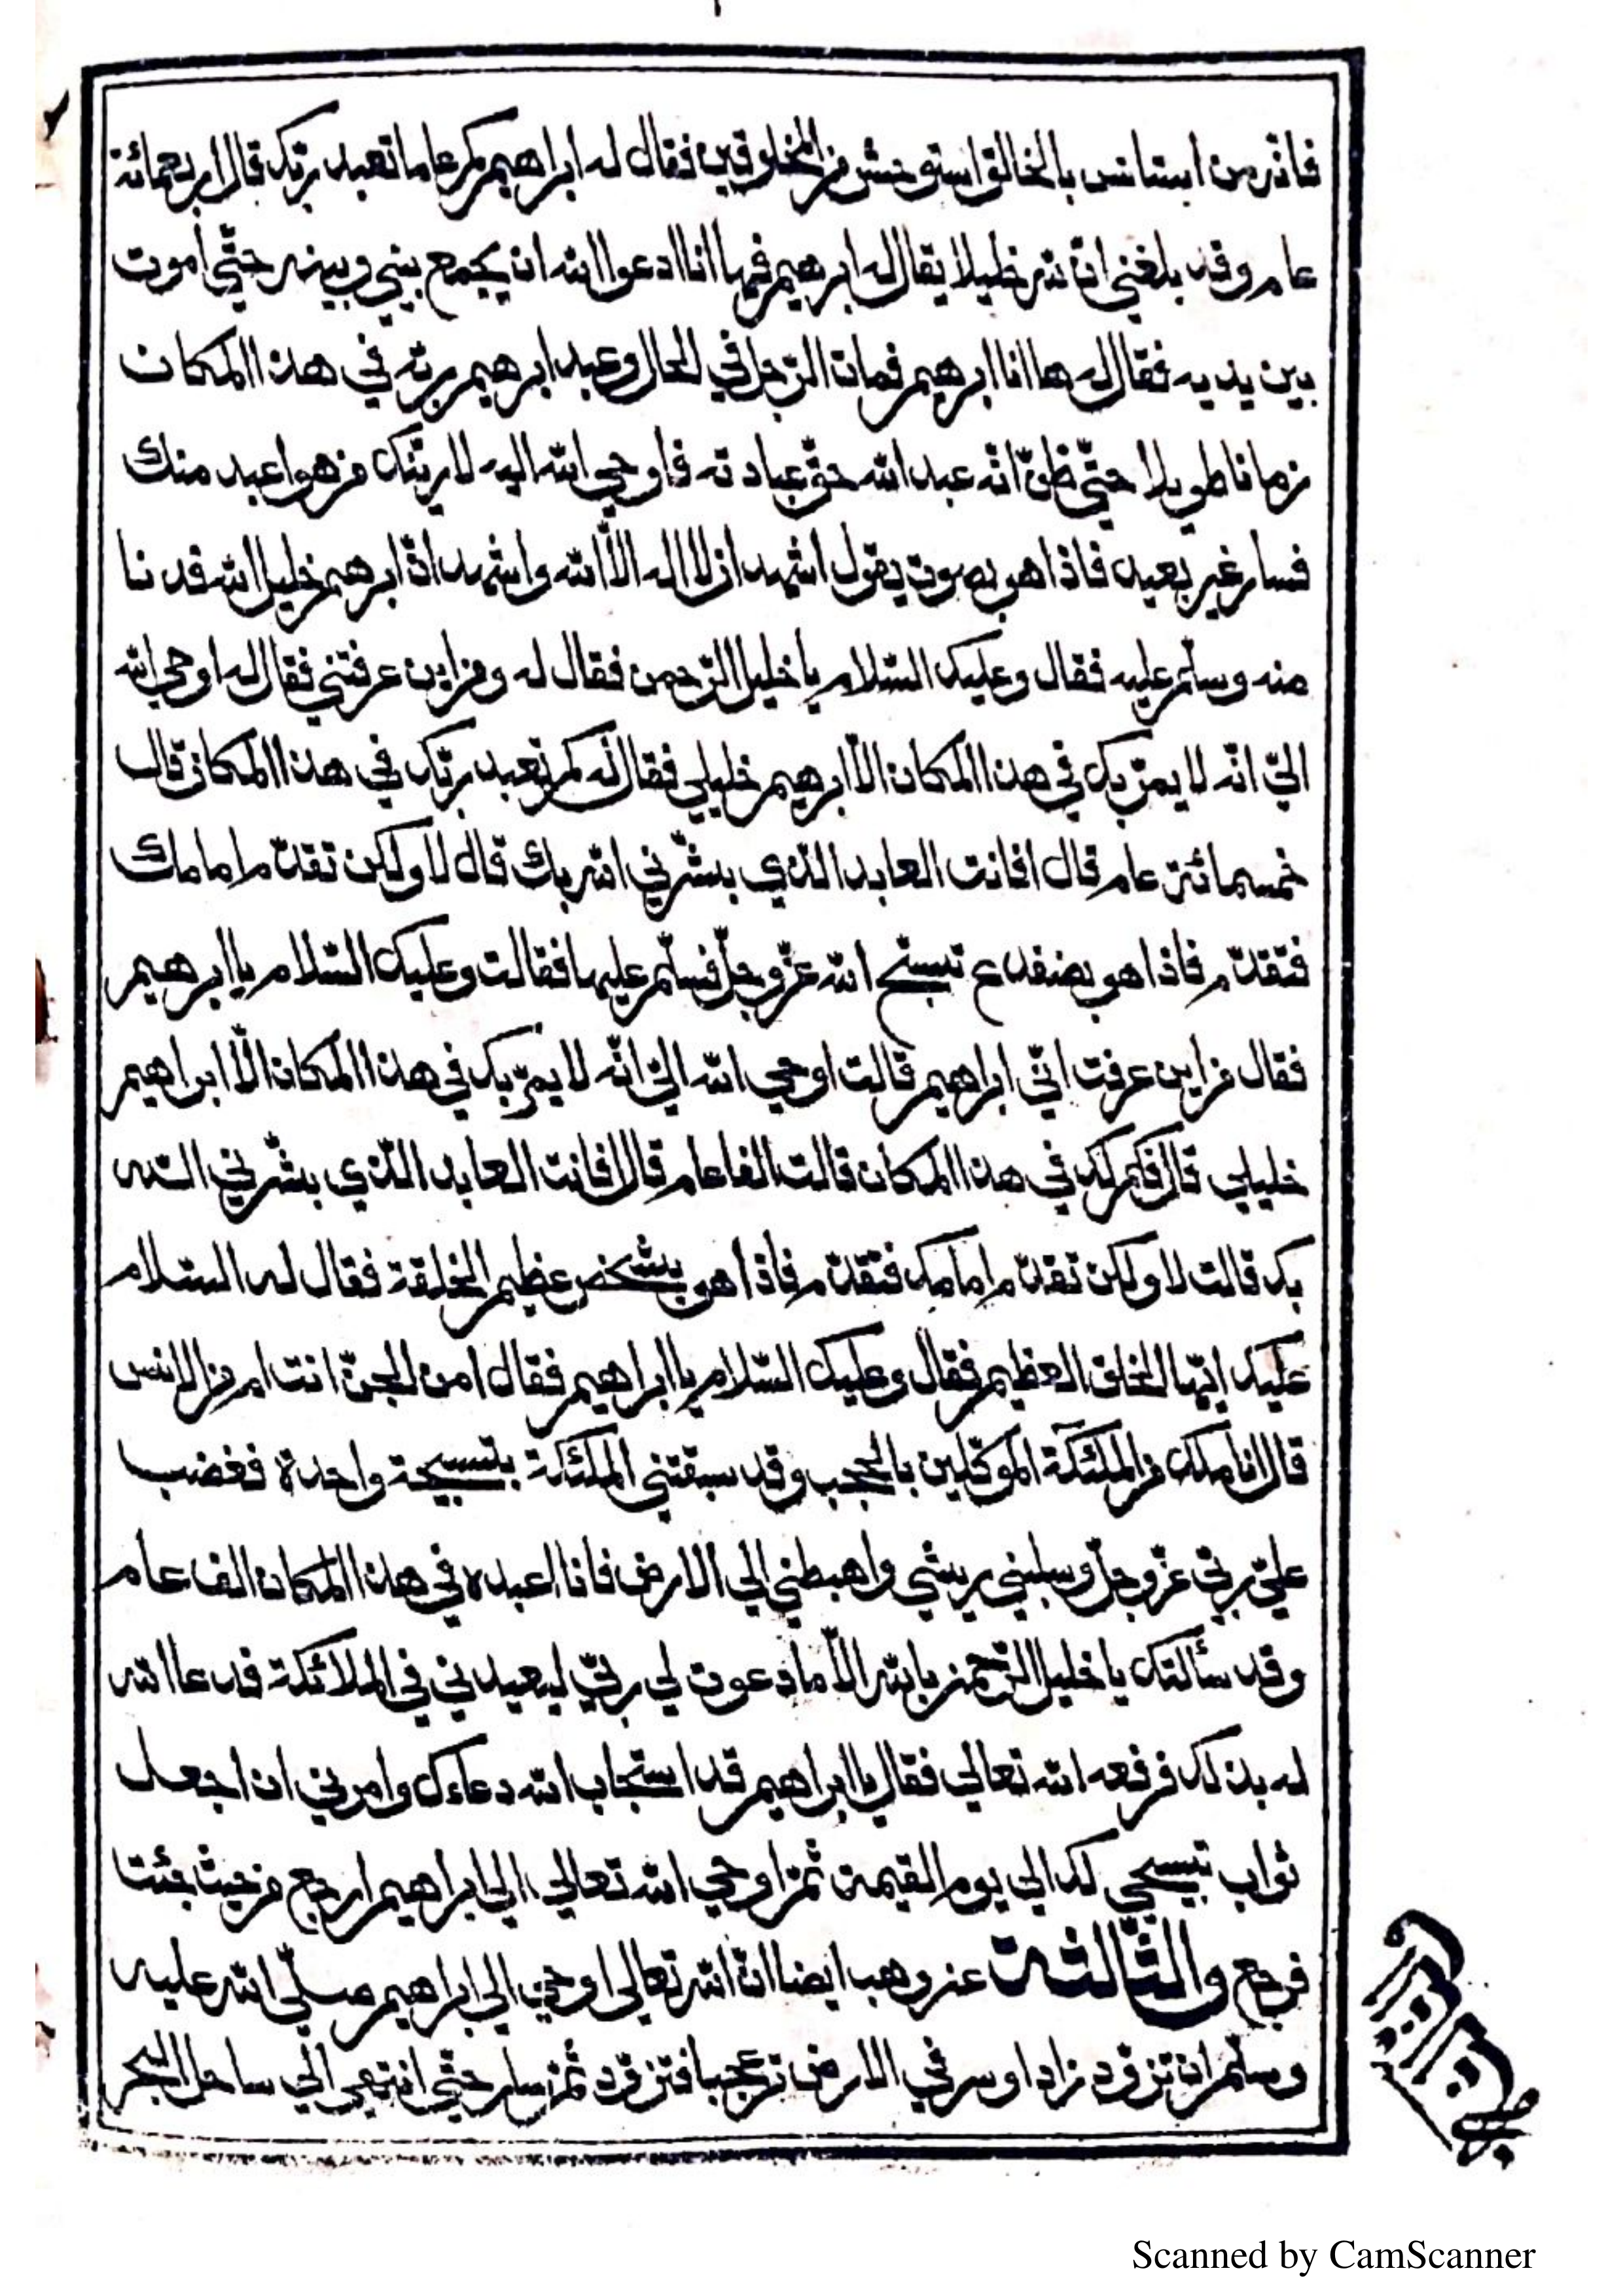 فانه من استانس بالخالق استوحش من المخلوقين فقال له ابراهيم كم عاما تعبد ربك قال اربعمائة
عام وقد بلغني ان لله خليلا يقال له ابرهيم فها انا ادعوا الله ان يجمع بيني وبينه حتّي أموت
بين يديه فقال له ها انا ابرهيم فمات الرّجل في الحال وعبد ابرهيم ربّه في هذا المكان
زمانا طويلا حتّي ظنّ انّه عبد الله حقّ عبادته فاوحي الله اليه لارينّك من هو اعبد منك
فسار غير بعيد فاذا هو بصوت يقول اشهد ان لا اله الاّ الله واشهد انّ ابرهيم خليل الله فدنا
منه وسلّم عليه فقال وعليك السّلام يا خليل الرّحمن فقال له ومن اين عرفتني فقال له اوحي الله
اليّ انّه لا يمرّ بك في هذا المكان الاّ ابرهيم خليلي فقال له كم تعبد ربّك في هذا المكان قال
خمسمائة عام قال افانت العابد الذّي بشّرني الله بك قال لا ولكن تقدّم امامك
فتقدّم فاذا هو بضفدع تسبّح الله عزّ وجلّ فسلّم عليها فقالت وعليك السّلام يا ابرهيم
فقال من اين عرفت انّي ابراهيم قالت اوحي الله اليّ انّه لا يمرّ بك في هذا المكان الاّ ابراهيم
خليلي قال فكم لك في هذا المكان قالت الفا عام قال افانت العابد الذّي بشّرني اللّه
بك قالت لا ولكن تقدّم امامك فتقدّم فاذا هو بشخص عظيم الخلقة فقال له السّلام
عليك ايّها الخلق العظيم فقال وعليك السّلام يا ابراهيم فقال امن الجنّ انت ام من الانس
قال انا ملك من الملئكة الموكّلين بالحجب وقد سبقتني الملئكة بتسبيحة واحدة فغضب
عليّ ربّي عزّ وجلّ وسلبني ريشي واهبطني الي الارض فانا اعبده في هذا المكان الف عام
وقد سألتك يا خليل الرّحمن بالله الاّ ما دعوت لي ربّي ليعيدني في الملائكة فدعا الله
له بذلك فرفعه الله تعالي فقال يا ابراهيم قد استجاب الله دعاءك وامرني ان اجعل
ثواب تسبيحي لك الي يوم القيمة ثمّ اوحي الله تعالي الي ابراهيم ارجع من حيث جئت
فرجع والثّالثة عن وهب ايضا انّ الله تعالي اوحي الي ابراهيم صلّي الله عليه
وسلّم ان تزوّد زادا وسر في الارض تر عجبا فتزوّد ثمّ سار حتّي انتهي الي ساحل البحر
Scanned by CamScanner